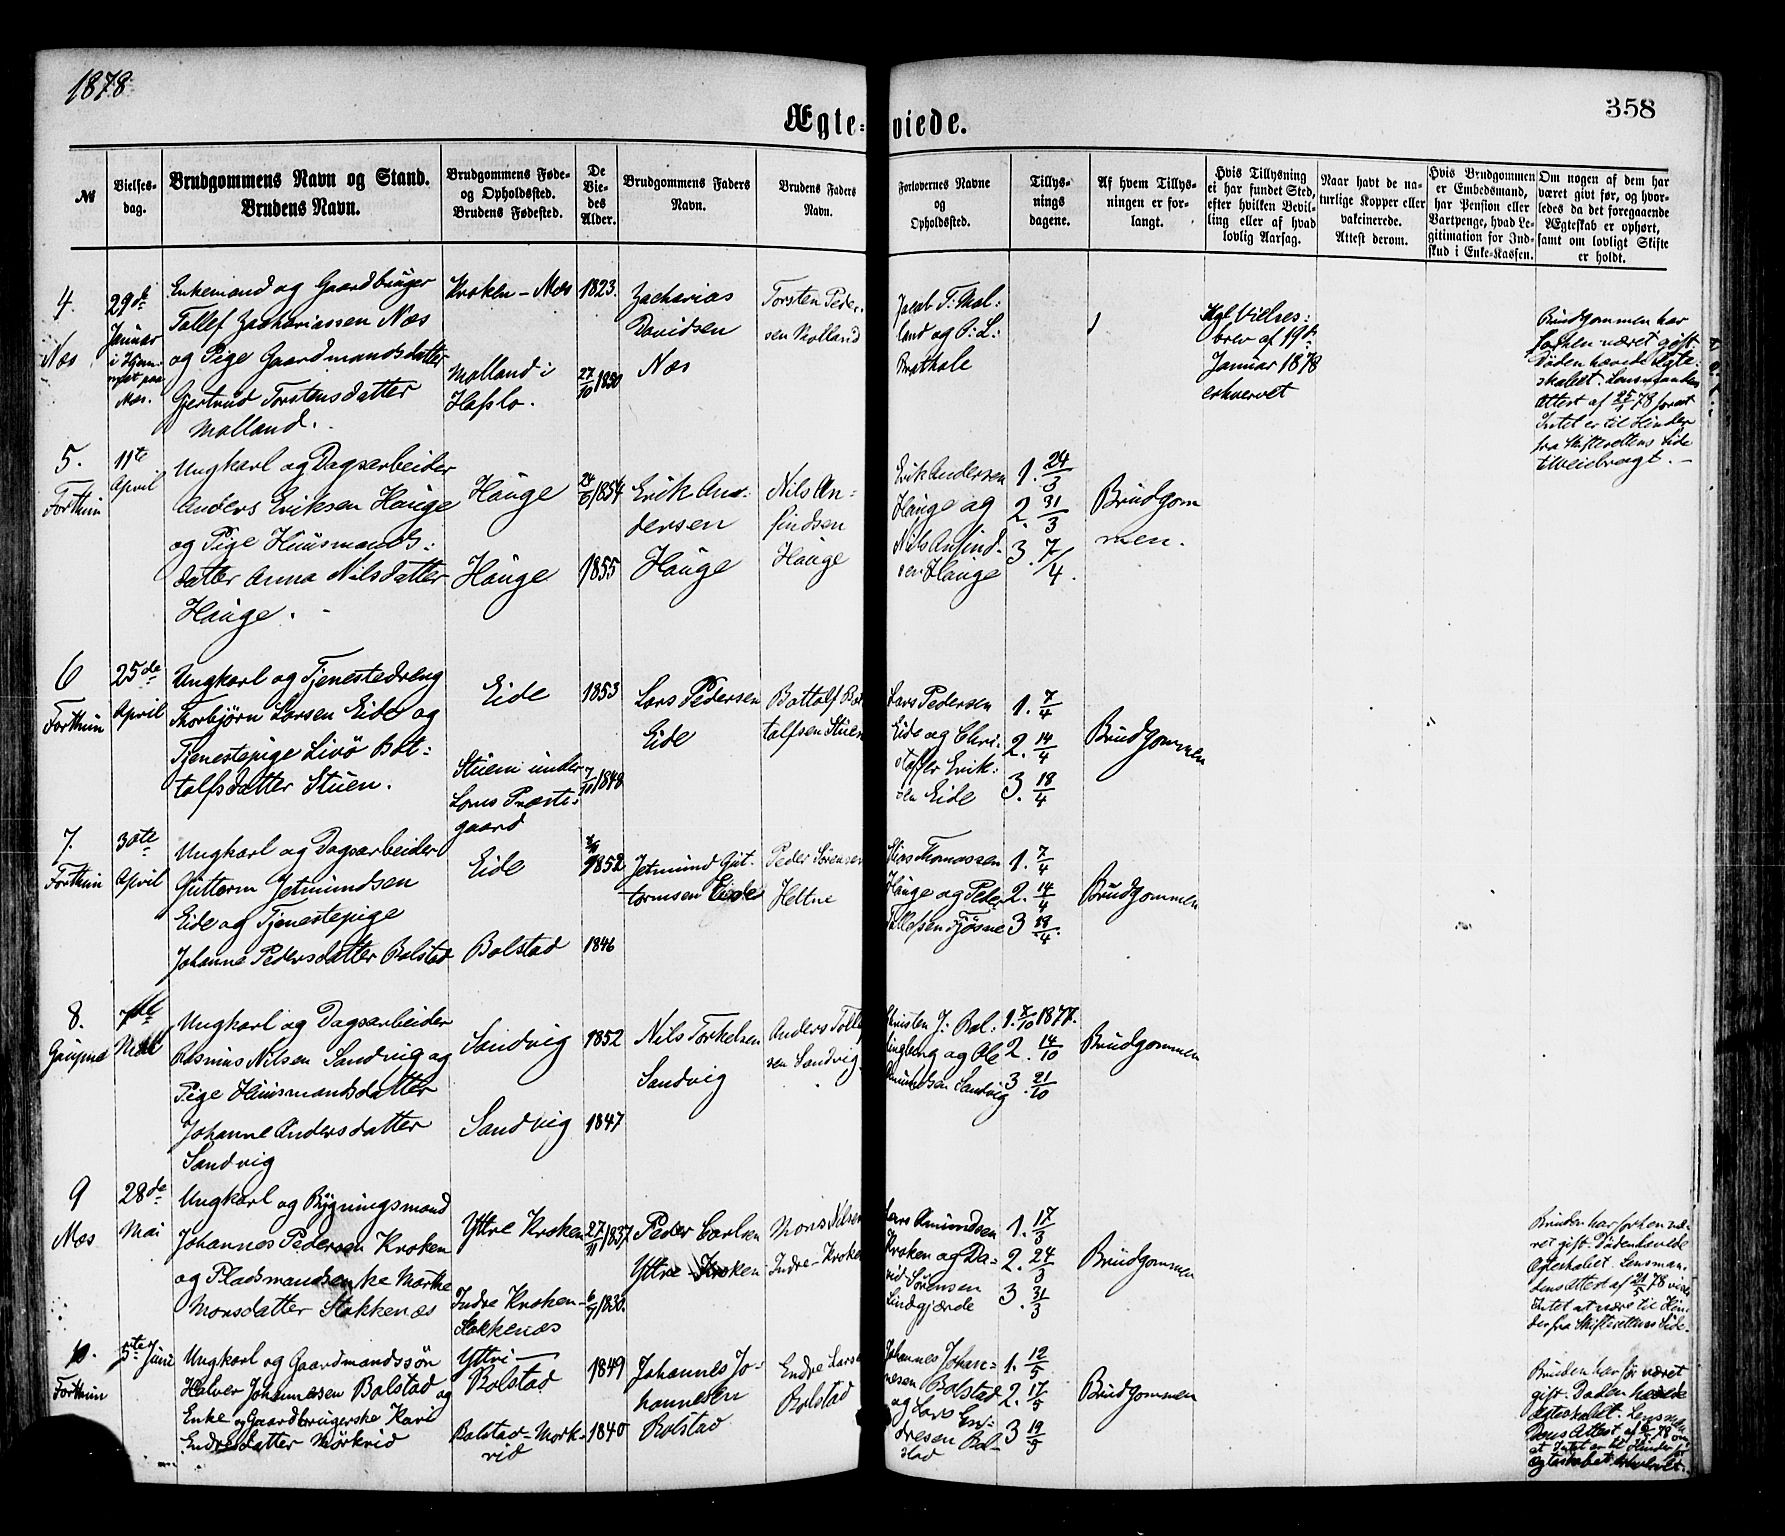 1878
358
Ægte-viede.
№
Vielses-dag.
Brudgommens Navn og Stand.
Brudens Navn.
Brudgommens Føde-
og Opholdssted.
Brudens Fødested.
De
Vie-
des
Alder.
Brudgommens Faders
Navn.
Brudens Faders
Navn.
Forlovernes Navne
og
Opholdssted.
Tillys-
nings
dagene.
Af hvem Tillys-
ningen er for-
langt.
Hvis Tillysning
ei har fundet Sted,
efter hvilken Bevil-
ling eller af hvad
lovlig Aarsag.
Naar havt de na-
turlige Kopper eller
vakcinerede.
Attest derom.
Hvis Brudgommen
er Embedsmand,
har Pension eller
Vartpenge, hvad Le-
gitimation for Ind-
skud i Enke-Kassen.
Om nogen af dem har
været givt før, og hvor-
ledes da det foregaaende
Ægteskab er ophørt,
samt om lovligt Skifte
er holdt.
4.
Næs
29de
Januar
i Hjem-
met paa
Næs.
Enkemand og Gaardbruger
Tollef Zachariassen Næs
og Pige Gaardmandsdatter
Gjertrud Torstensdatter
Molland.
Kroken - Næs
Molland i
Hafslo.
1823.
27/10 1850
Zacharias
Davidsen
Næs
Torsten Peder-
sen Molland
Jacob T. Mol-
land og O. L.
Kgl Vielses-
brev af 19de
Januar 1878
erhvervet
Brudgommen har
forhen været gift.
Døden hævede Ægte-
skabet. Lensmandens
Attest af 25/1 78 for at
Intet er til Hinder
fra Skifterettens Side
tilveiebragt. -
5.
Forthun
11te
April
Ungkarl og Dagsarbeider
Anders Eriksen Hauge
og Pige Huusmands-
datter Anna Nilsdatter
Hauge.
Hauge
Hauge
1854
1855
Erik An-
dersen
Hauge
Nils An-
findsen
Hauge
Erik Andersen
Hauge og
Nils Anfind-
sen Hauge
1. 24/3
2. 31/3
3. 7/4.
Brudgom
men.
6
Forthun
25de
April
Ungkarl og Tjenestedreng
Thorbjørn Larsen Eide og
Tjenestepige Livø Bot-
talfsdatter Stuen.
Eide
Stuen under
Loms Præste-
gaard
1853
1848
Lars Pedersen
Eide
Bottolf Bot
talfsen Stuen
Lars Pedersen
Eide og Chri-
stoffer Erik-
sen Eide
1. 7/4
2. 14/4
3. 18/4
Brudgommen
7.
Forthun
30te
April
Ungkarl og Dagsarbeider
Guttorm Jetmundsen
Eide og Tjenestepige
Johanne Pedersdatter Bolstad
Eide
Bolstad
1852
1846
Jetmund Gut-
tormsen Eide
Peder Sørensen
Heltne
Thomassen
Hauge og Peder
Tollefsen Fjøsne
1. 7/4
2. 14/4
3 18/4.
Brudgommen
8.
Gaupne
7de
Mai
Ungkarl og Dagsarbeider
Rasmus Nilsen Sandvig og
Pige Huusmandsdatter
Johanne Andersdatter
Sandvig
Sandvig
Sandvig
1852
1847
Nils Torkelsen
Sandvig
Anders Tollef
sen Sandvig.
Kristen J. Bol-
lingberg og Ole
Amundsen Sandvig
1. 7/10 1877.
2. 14/10
3. 21/10
Brudgommen
9
Næs
28de
Mai
Ungkarl og Bygningsmand
Johannes Pedersen Kroken
og Pladsmandsenke Marthe
Monsdatter Stokkenæs
Yttre Kroken
Indre Kroken-
Stokkenæs
27/11 1837
1838.
Peder Carlsen
Yttre Kroken
Mons Nilsen
Indre-Kroken
Lars Amundsen
Kroken og Da-
vid Sørensen
Lindgjerde
1. 17/3
2. 24/3
3. 31/3
Brudgommen
Bruden har forhen væ-
ret gift. Døden hævede
Ægteskabet. Lensman-
dens Attest af 21/5 78 viser
Intet at være til Hin-
der fra Skifterettens Side.
10.
Forthun
5te Juni
Ungkarl og Gaardmandssøn
Halvor Johannesen Bolstad og
Enke og Gaardbrugerske Kari
Endresdatter Mørkrid
Yttri-
Bolstad
Bolstad-Mørk-
rid
1849
1840
Johannes Jo-
hannesen
Bolstad
Endre Larsen
Bolstad
Johannes Johan-
nesen Bolstad
og Lars En-
dresen Bol-
stad
1. 12/5
2. 17/5
3 19/5
Brudgommen
Bruden har før været
gift. Døden hævede
Ægteskabet. Lensman-
dens Attest af 78 om
at Intet er til Hinder for
Ægteskabet erhvervet.